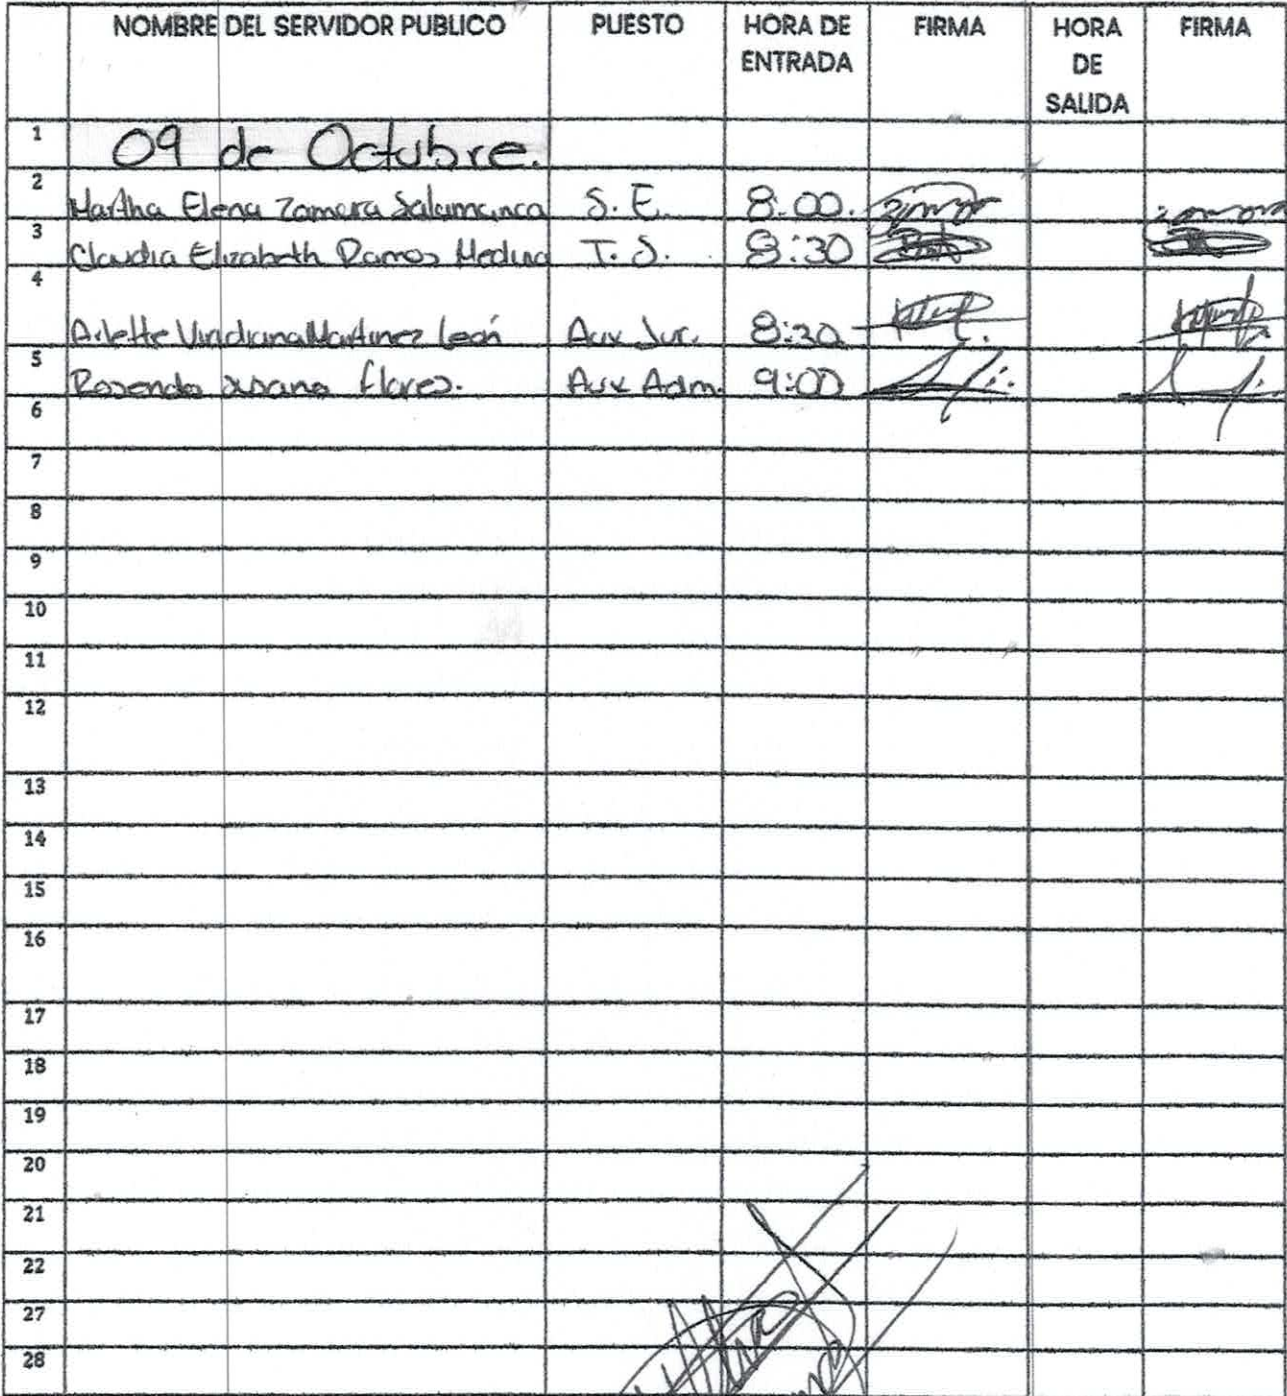 NOMBRE DEL SERVIDOR PUBLICO PUESTO HORA DE ENTRADA FIRMA HORA DE SALIDA FIRMA
1 09 de Octubre.
2 Martha Elena Zamora Salamanca S. E. 8:00.
3 Claudia Elizabeth Ramos Medina T. S. 8:30
4 Arlette Viridiana Martinez León Aux Jur. 8:30
5 Rosendo flores. Aux Adm. 9:00
6
7
8
9
10
11
12
13
14
15
16
17
18
19
20
21
22
27
28